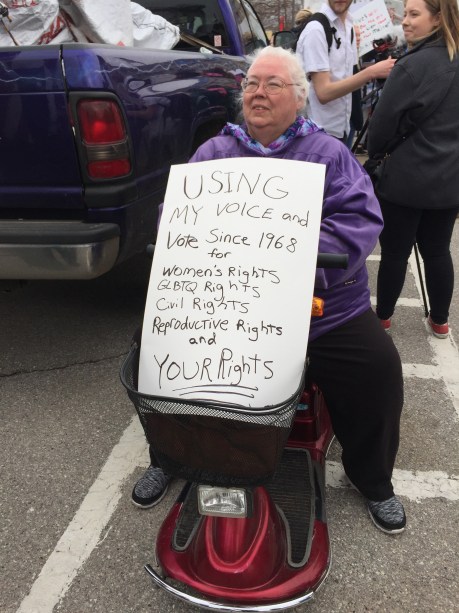 USING
MY VOICE and
Vote Since 1968
for
Women's Rights
GLBTQ Rights
Civil Rights
Reproductive Rights
and
YOUR Rights